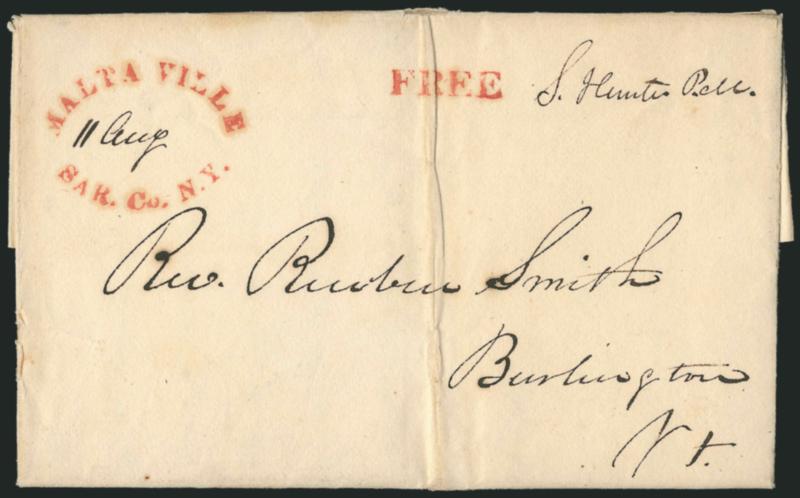 MALTA VILLE
11 Aug
SAR. Co. N.Y.
FREE
S. Hunter P.M.
Rev. Reuben Smith
Burlington
Vt.